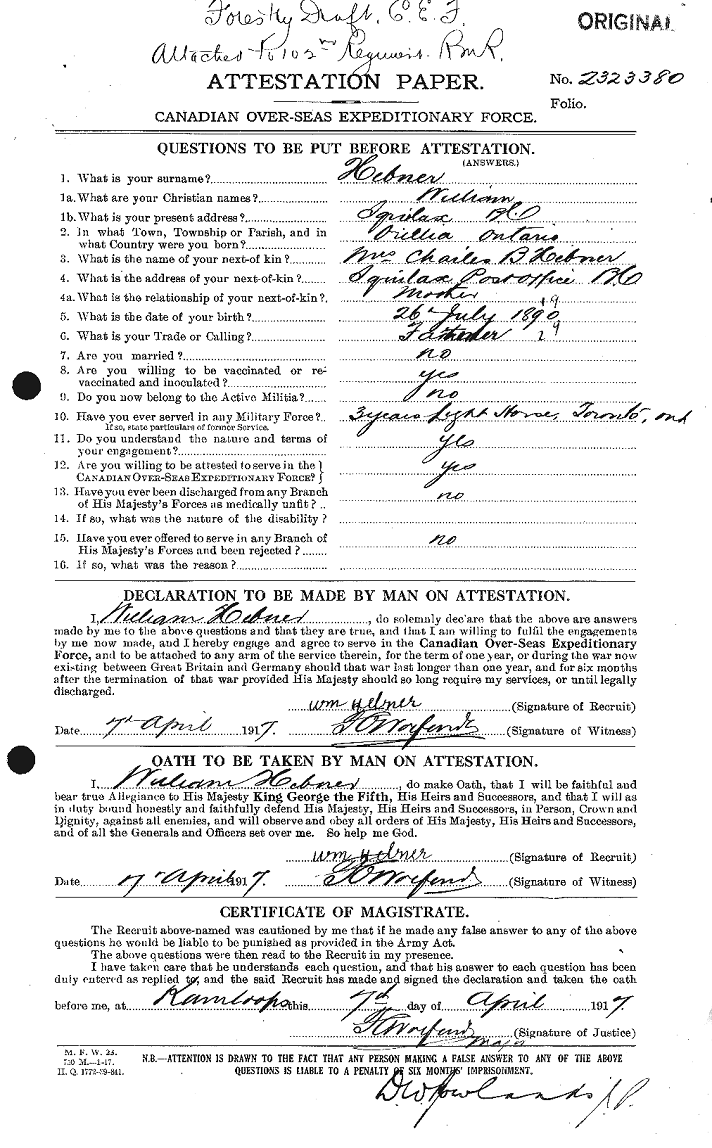 Forestry Draft. C.E.F.
ORIGINAL
Attached to 102nd Regiment. RMR.
ATTESTATION PAPER.
No. 2323380
Folio.
CANADIAN OVER-SEAS EXPEDITIONARY FORCE.
QUESTIONS TO BE PUT BEFORE ATTESTATION.
(ANSWERS.)
1. What is your surname? Hebner
1a. What are your Christian names? William
1b. What is your present address? Squilax BC
2. In what Town, Township or Parish, and in what Country were you born? Orillia Ontario
3. What is the name of your next-of kin? Mrs Charles B Hebner
4. What is the address of your next-of-kin? Squilax Post office BC
4a. What is the relationship of your next-of-kin? Mother
5. What is the date of your birth? 26th July 1890
19
6. What is your Trade or Calling?
29
7. Are you married? no
8. Are you willing to be vaccinated or re-vaccinated and inoculated? yes
9. Do you now belong to the Active Militia? no
10. Have you ever served in any Military Force? 3 years Light Horse, Toronto, ont
If so, state particulars of former Service.
11. Do you understand the nature and terms of your engagement? yes
12. Are you willing to be attested to serve in the CANADIAN OVER-SEAS EXPEDITIONARY FORCE? yes
13. Have you ever been discharged from any Branch of His Majesty's Forces as medically unfit? no
14. If so, what was the nature of the disability?
15. Have you ever offered to serve in any Branch of His Majesty's Forces and been rejected? no
16. If so, what was the reason?
DECLARATION TO BE MADE BY MAN ON ATTESTATION.
I, William Hebner, do solemnly declare that the above are answers
made by me to the above questions and that they are true, and that I am willing to fulfil the engagements
by me now made, and I hereby engage and agree to serve in the Canadian Over-Seas Expeditionary
Force, and to be attached to any arm of the service therein, for the term of one year, or during the war now
existing between Great Britain and Germany should that war last longer than one year, and for six months
after the termination of that war provided His Majesty should so long require my services, or until legally
discharged.
Wm Hebner (Signature of Recruit)
Date 7th April 1917. (Signature of Witness)
OATH TO BE TAKEN BY MAN ON ATTESTATION.
I, William Hebner, do make Oath, that I will be faithful and
bear true Allegiance to His Majesty King George the Fifth, His Heirs and Successors, and that I will as
in duty bound honestly and faithfully defend His Majesty, His Heirs and Successors, in Person, Crown and
Dignity, against all enemies, and will observe and obey all orders of His Majesty, His Heirs and Successors,
and of all the Generals and Officers set over me. So help me God.
Wm Hebner (Signature of Recruit)
Date 7th April 1917. (Signature of Witness)
CERTIFICATE OF MAGISTRATE.
The Recruit above-named was cautioned by me that if he made any false answer to any of the above
questions he would be liable to be punished as provided in the Army Act.
The above questions were then read to the Recruit in my presence.
I have taken care that he understands each question, and that his answer to each question has been
duly entered as replied to, and the said Recruit has made and signed the declaration and taken the oath
before me, at Kamloops this 7th day of April 1917
(Signature of Justice)
Major
M. F. W. 23.
750 M.—1-17.
H. Q. 1772-39-841.
N.B.—ATTENTION IS DRAWN TO THE FACT THAT ANY PERSON MAKING A FALSE ANSWER TO ANY OF THE ABOVE
QUESTIONS IS LIABLE TO A PENALTY OF SIX MONTHS' IMPRISONMENT.
DW Rowlands J.P.